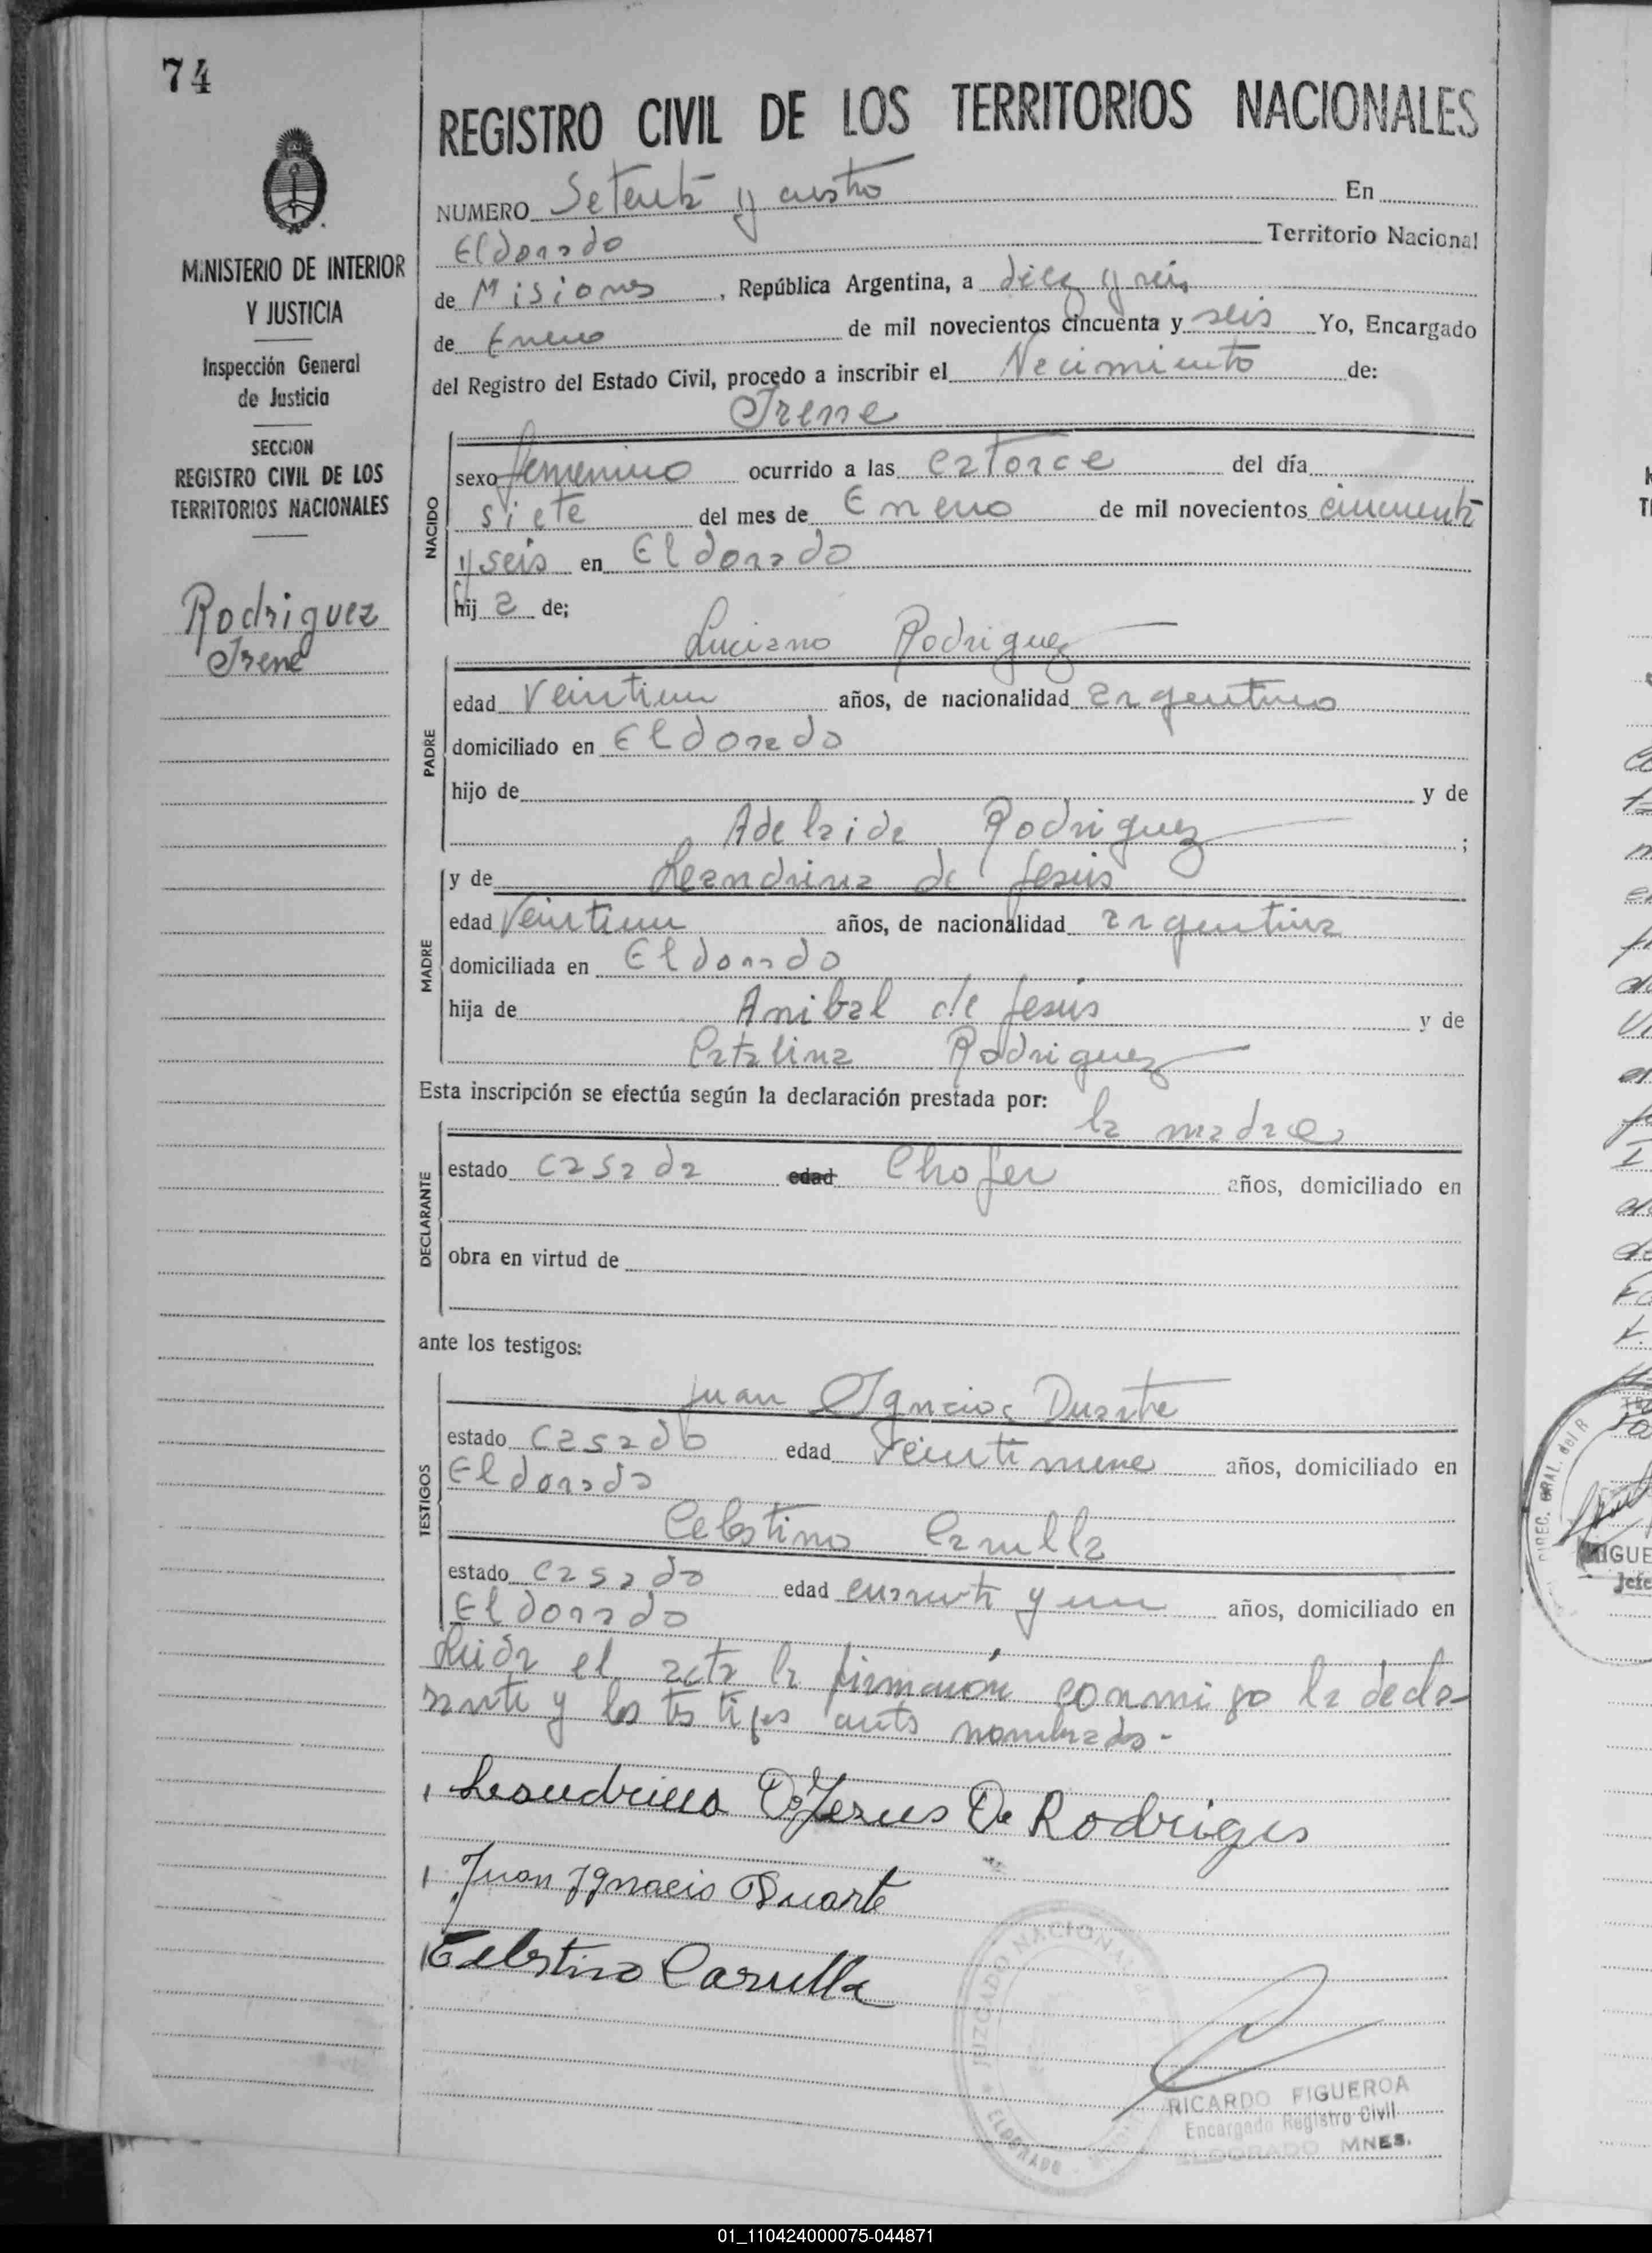 74
MINISTERIO DE INTERIOR
Y JUSTICIA
Inspección General
de Justicia
SECCION
REGISTRO CIVIL DE LOS
TERRITORIOS NACIONALES
Rodriguez
Irene
REGISTRO CIVIL DE LOS TERRITORIOS NACIONALES
NUMERO Setenta y cuatro En
Eldorado Territorio Nacional
de Misiones, República Argentina, a diez y seis
de Enero de mil novecientos cincuenta y seis Yo, Encargado
del Registro del Estado Civil, procedo a inscribir el Nacimiento de:
Irene
NACIDO
sexo femenino ocurrido a las catorce del día
siete del mes de Enero de mil novecientos cincuenta
y seis en Eldorado
hij a de;
Luciano Rodriguez
PADRE
edad Veintiun años, de nacionalidad argentino
domiciliado en Eldorado
hijo de y de
Adelaida Rodriguez ;
MADRE
y de Leandrina de Jesús
edad Veintiun años, de nacionalidad argentina
domiciliada en Eldorado
hija de Anibal de Jesús y de
Catalina Rodriguez
Esta inscripción se efectúa según la declaración prestada por:
la madre
DECLARANTE
estado casada edad Chofer años, domiciliado en
obra en virtud de
ante los testigos:
TESTIGOS
Juan Ignacio Duarte
estado casado edad veintinueve años, domiciliado en
Eldorado
Celestino Carulla
estado casado edad cuarenta y un años, domiciliado en
Eldorado
Leida el acta la firmarón conmigo la decla-
rante y los testigos antes nombrados.-
Leandrina De Jesus De Rodriges
Juan Ignacio Duarte
Celestino Carulla
JUZGADO NACIONAL DE
ELDORADO
RICARDO FIGUEROA
Encargado Registro Civil
ELDORADO MNES.
DIREC. GRAL. del R
MIGUE
Jefe
01_110424000075-044871